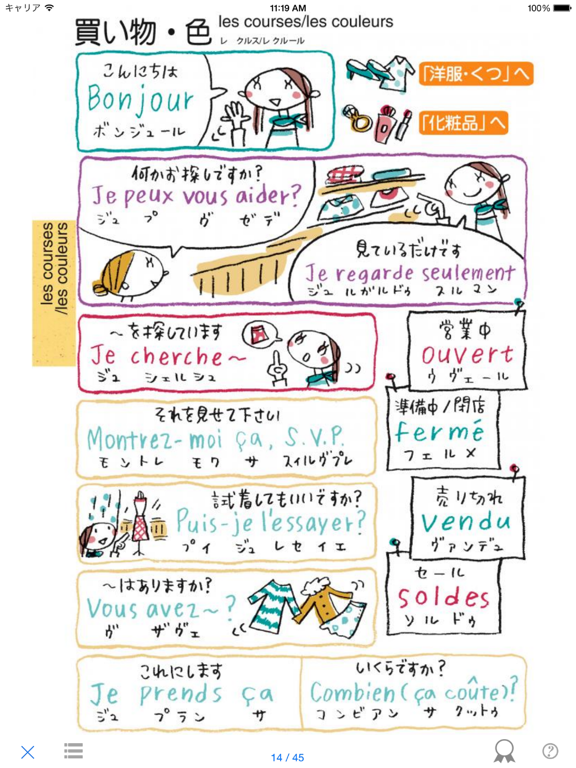 キャリア
11:19 AM
100%
買い物・色
les courses/les couleurs
レ クルス/レ クルール
こんにちは
Bonjour
ボンジュール
「洋服・くつ」へ
「化粧品」へ
何かお探しですか?
Je peux vous aider?
ジュ プ ヴ ゼデ
見ているだけです
Je regarde seulement
ジュ ルガルドゥ スルマン
les courses
/les couleurs
〜を探しています
Je cherche〜
ジュ シェルシュ
営業中
ouvert
ウヴェール
準備中/閉店
fermé
フェルメ
それを見せて下さい
Montrez-moi ça, S.V.P.
モントレ モワ サ スィルヴプレ
試着してもいいですか?
Puis-je l'essayer?
プイ ジュ レセイエ
売り切れ
vendu
ヴァンデュ
〜はありますか?
Vous avez〜?
ヴ ザヴェ
セール
soldes
ソルドゥ
これにします
Je prends ça
ジュ プラン サ
いくらですか?
Combien (ça coûte)?
コンビアン サ クットゥ
14 / 45